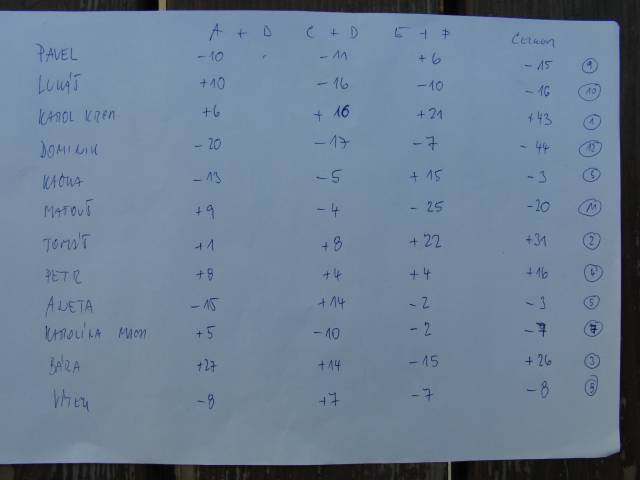 A + D C + D E + F Celkem
PAVEL -10 -11 +6 -15 9
LUKÁŠ +10 -16 -10 -16 10
KAROL KREM +6 +16 +21 +43 1
DOMINIK -20 -17 -7 -44 12
KAČKA -13 -5 +15 -3 5
MATOUŠ +9 -4 -25 -20 11
TOMÁŠ +1 +8 +22 +31 2
PETR +8 +4 +4 +16 4
ANETA -15 +14 -2 -3 5
KAROLÍNA -|+5 -10 -2 -7 7
BÁRA +27 +14 -15 +26 3
VÍTEK -8 +7 -7 -8 8